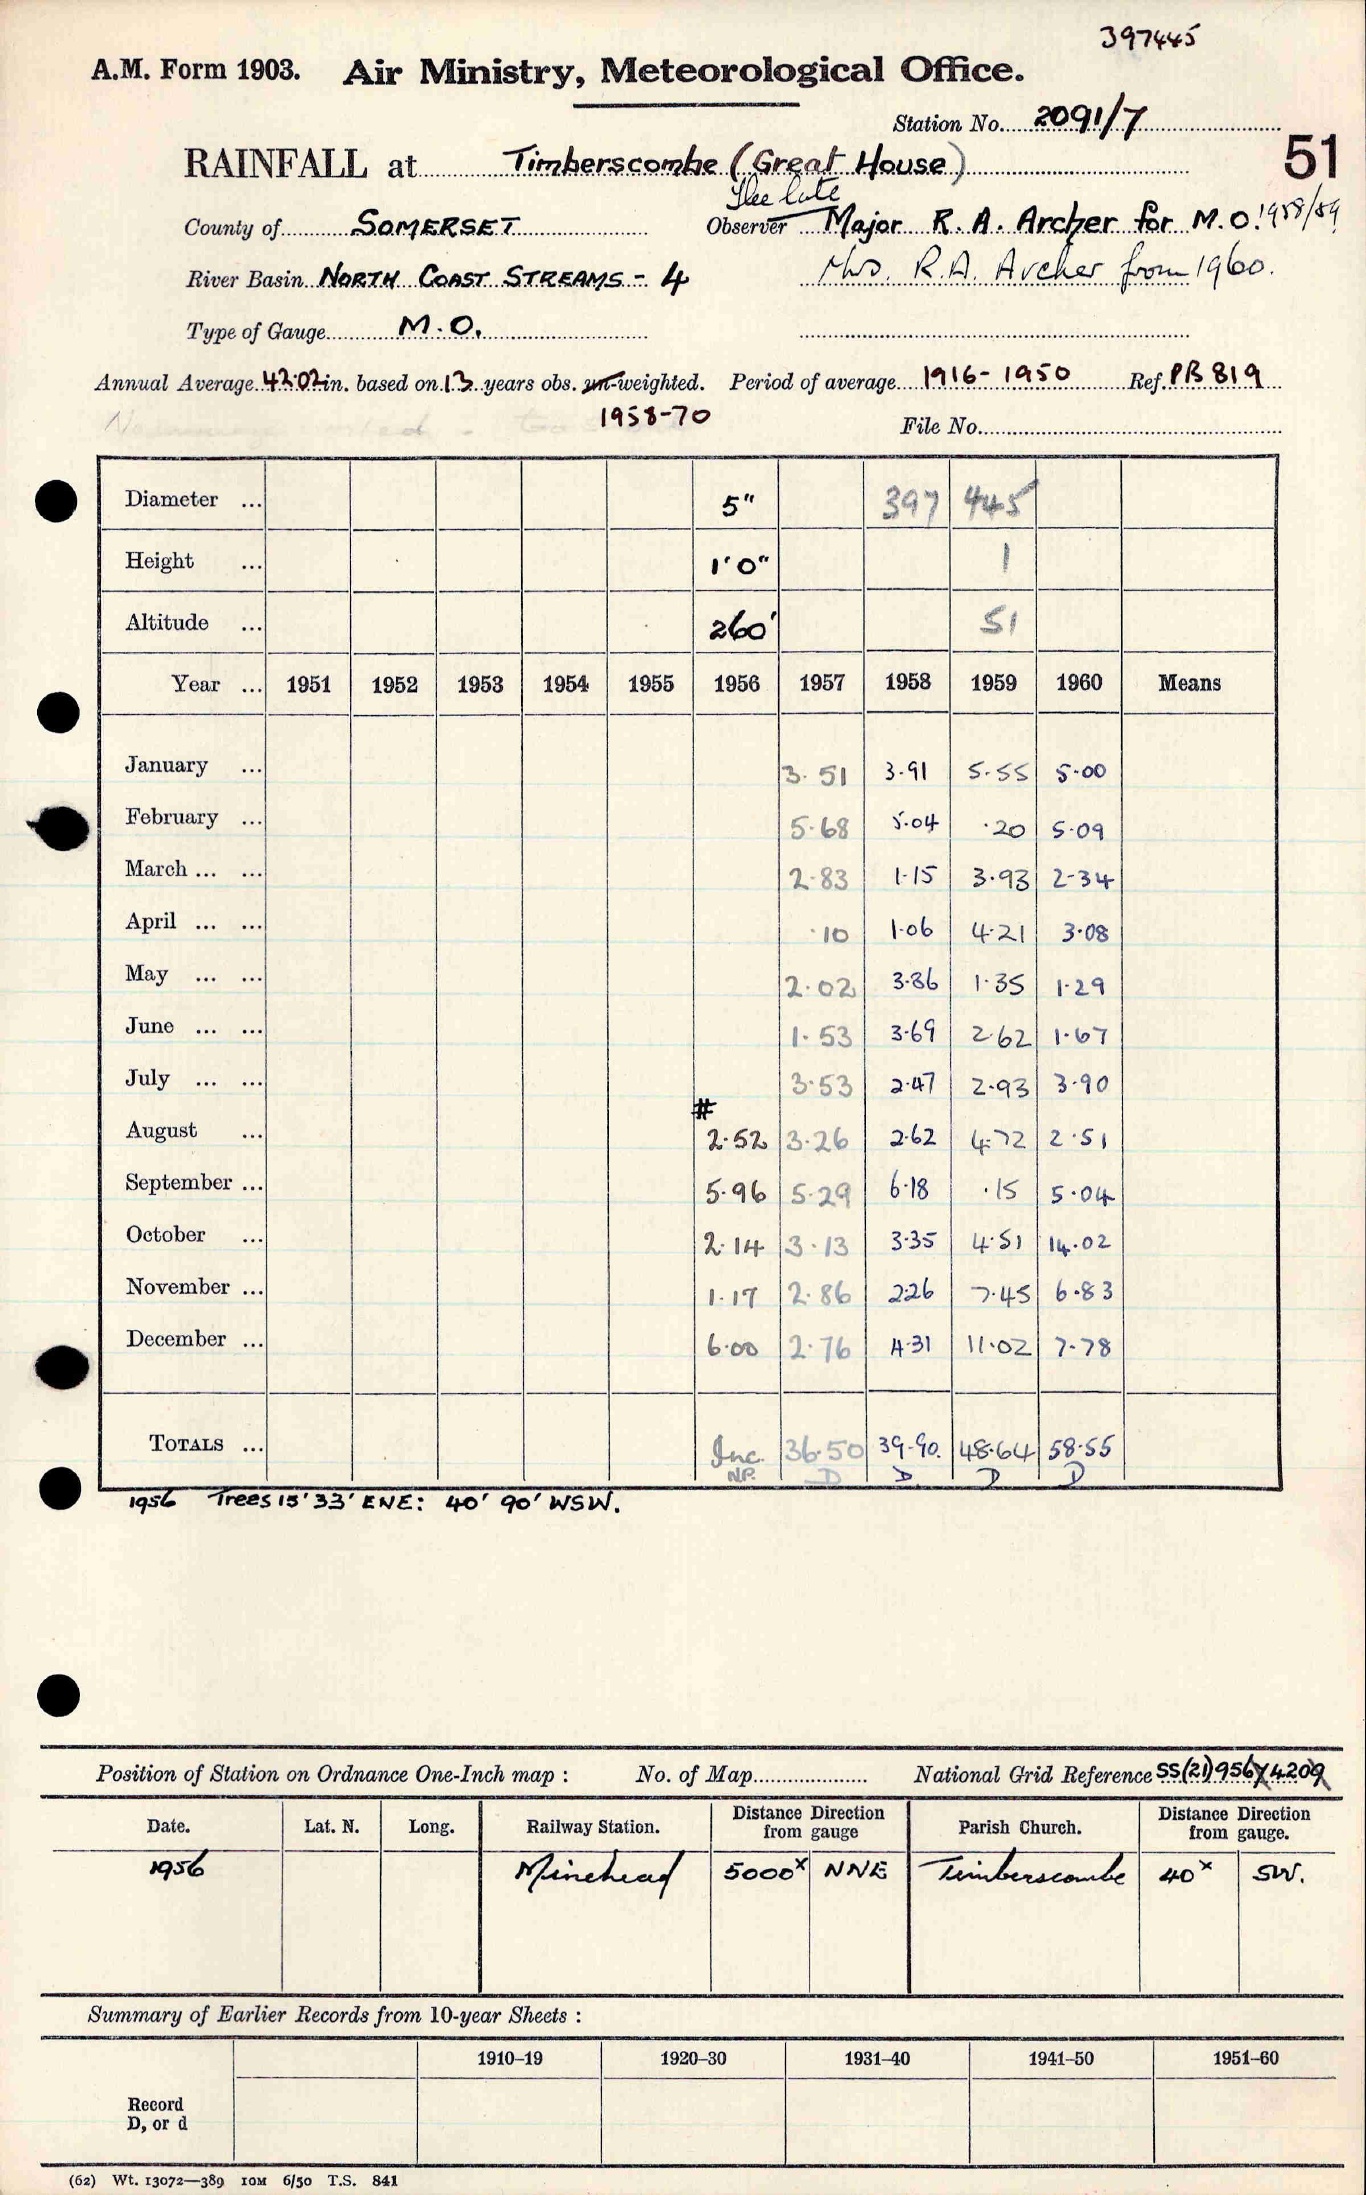 397445
A.M. Form 1903. Air Ministry, Meteorological Office.
Station No. 2091/7
51
RAINFALL at Timberscombe (Great House)
The late
County of SOMERSET Observer Major R. A. Archer for M.O. 1958/59
River Basin NORTH COAST STREAMS - 4 Mrs. R.A. Archer from 1960.
Type of Gauge M.O.
Annual Average 42.02 in. based on 13 years obs. un-weighted. Period of average 1916-1950 Ref. PB 819
1958-70 File No.
Diameter ... 5" 397 445
Height ... 1'0" 1
Altitude ... 260' 51
Year ... 1951 1952 1953 1954 1955 1956 1957 1958 1959 1960 Means
January ... 3.51 3.91 5.55 5.00
February ... 5.68 5.04 .20 5.09
March ... ... 2.83 1.15 3.93 2.34
April ... ... .10 1.06 4.21 3.08
May ... ... 2.02 3.86 1.35 1.29
June ... ... 1.53 3.69 2.62 1.67
July ... ... 3.53 2.47 2.93 3.90
#
August ... 2.52 3.26 2.62 4.72 2.51
September ... 5.96 5.29 6.18 .15 5.04
October ... 2.14 3.13 3.35 4.51 14.02
November ... 1.17 2.86 2.26 7.45 6.83
December ... 6.00 2.76 4.31 11.02 7.78
TOTALS ... Inc. 36.50 39.90. 48.64 58.55
N.P. D D D D
1956 Trees 15' 33' ENE: 40' 90' WSW.
Position of Station on Ordnance One-Inch map : No. of Map National Grid Reference SS(21)956 420
Date. Lat. N. Long. Railway Station. Distance Direction from gauge Parish Church. Distance Direction from gauge.
1956 Minehead 5000x NNE Timberscombe 40x SW.
Summary of Earlier Records from 10-year Sheets :
1910–19 1920–30 1931–40 1941–50 1951–60
Record
D, or d
(62) Wt. 13072—389 10M 6/50 T.S. 841